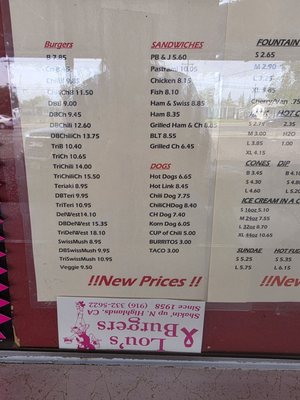 Burgers
B 7.85
ChiliB 9.85
ChiliChB 11.50
DBB 9.00
DBCh 9.45
DBChili 12.60
DBChiliCh 13.75
TriB 10.40
TriCh 10.65
TriChili 14.00
TriChiliCh 15.50
Teriaki 8.95
DBTeri 9.95
TriTeri 10.95
DelWest14.10
DBDelWest 15.35
TriDelWest 18.10
SwissMush 8.95
DBSwissMush 9.95
TriSwissMush 10.95
Veggie 9.50
SANDWICHES
PB & J 5.60
Pastrami 10.05
Chicken 8.15
Fish 8.10
Ham & Swiss 8.85
Ham 8.35
Grilled Ham & Ch 8.85
BLT 8.55
Grilled Ch 6.45
DOGS
Hot Dogs 6.65
Hot Link 8.45
Chili Dog 7.75
ChiliCHDog 8.40
CH Dog 7.40
Korn Dog 6.05
CUP of Chili 5.00
BURRITOS 3.00
TACO 3.00
FOUNTAIN
S 2.65
M 2.90
L 3.25
XL 3.85
Cherry/Van .75
S 2.75 2.35
M 3.00 H2O
L 3.85 1.00
XL 4.15
CONES DIP
B 3.45 B 4.10
S 4.30 S 4.80
L 4.60 L 5.20
ICE CREAM IN A C
S 16oz 5.10
M 24oz 7.55
L 32oz 8.70
XL 44oz 10.65
SUNDAE HOT FU
S 5.25 S 5.75
L 5.35 L 6.15
!!New Prices !!
Lou's
Burgers
Shakin' up N. Highlands, CA
Since 1958 (916) 332-5622